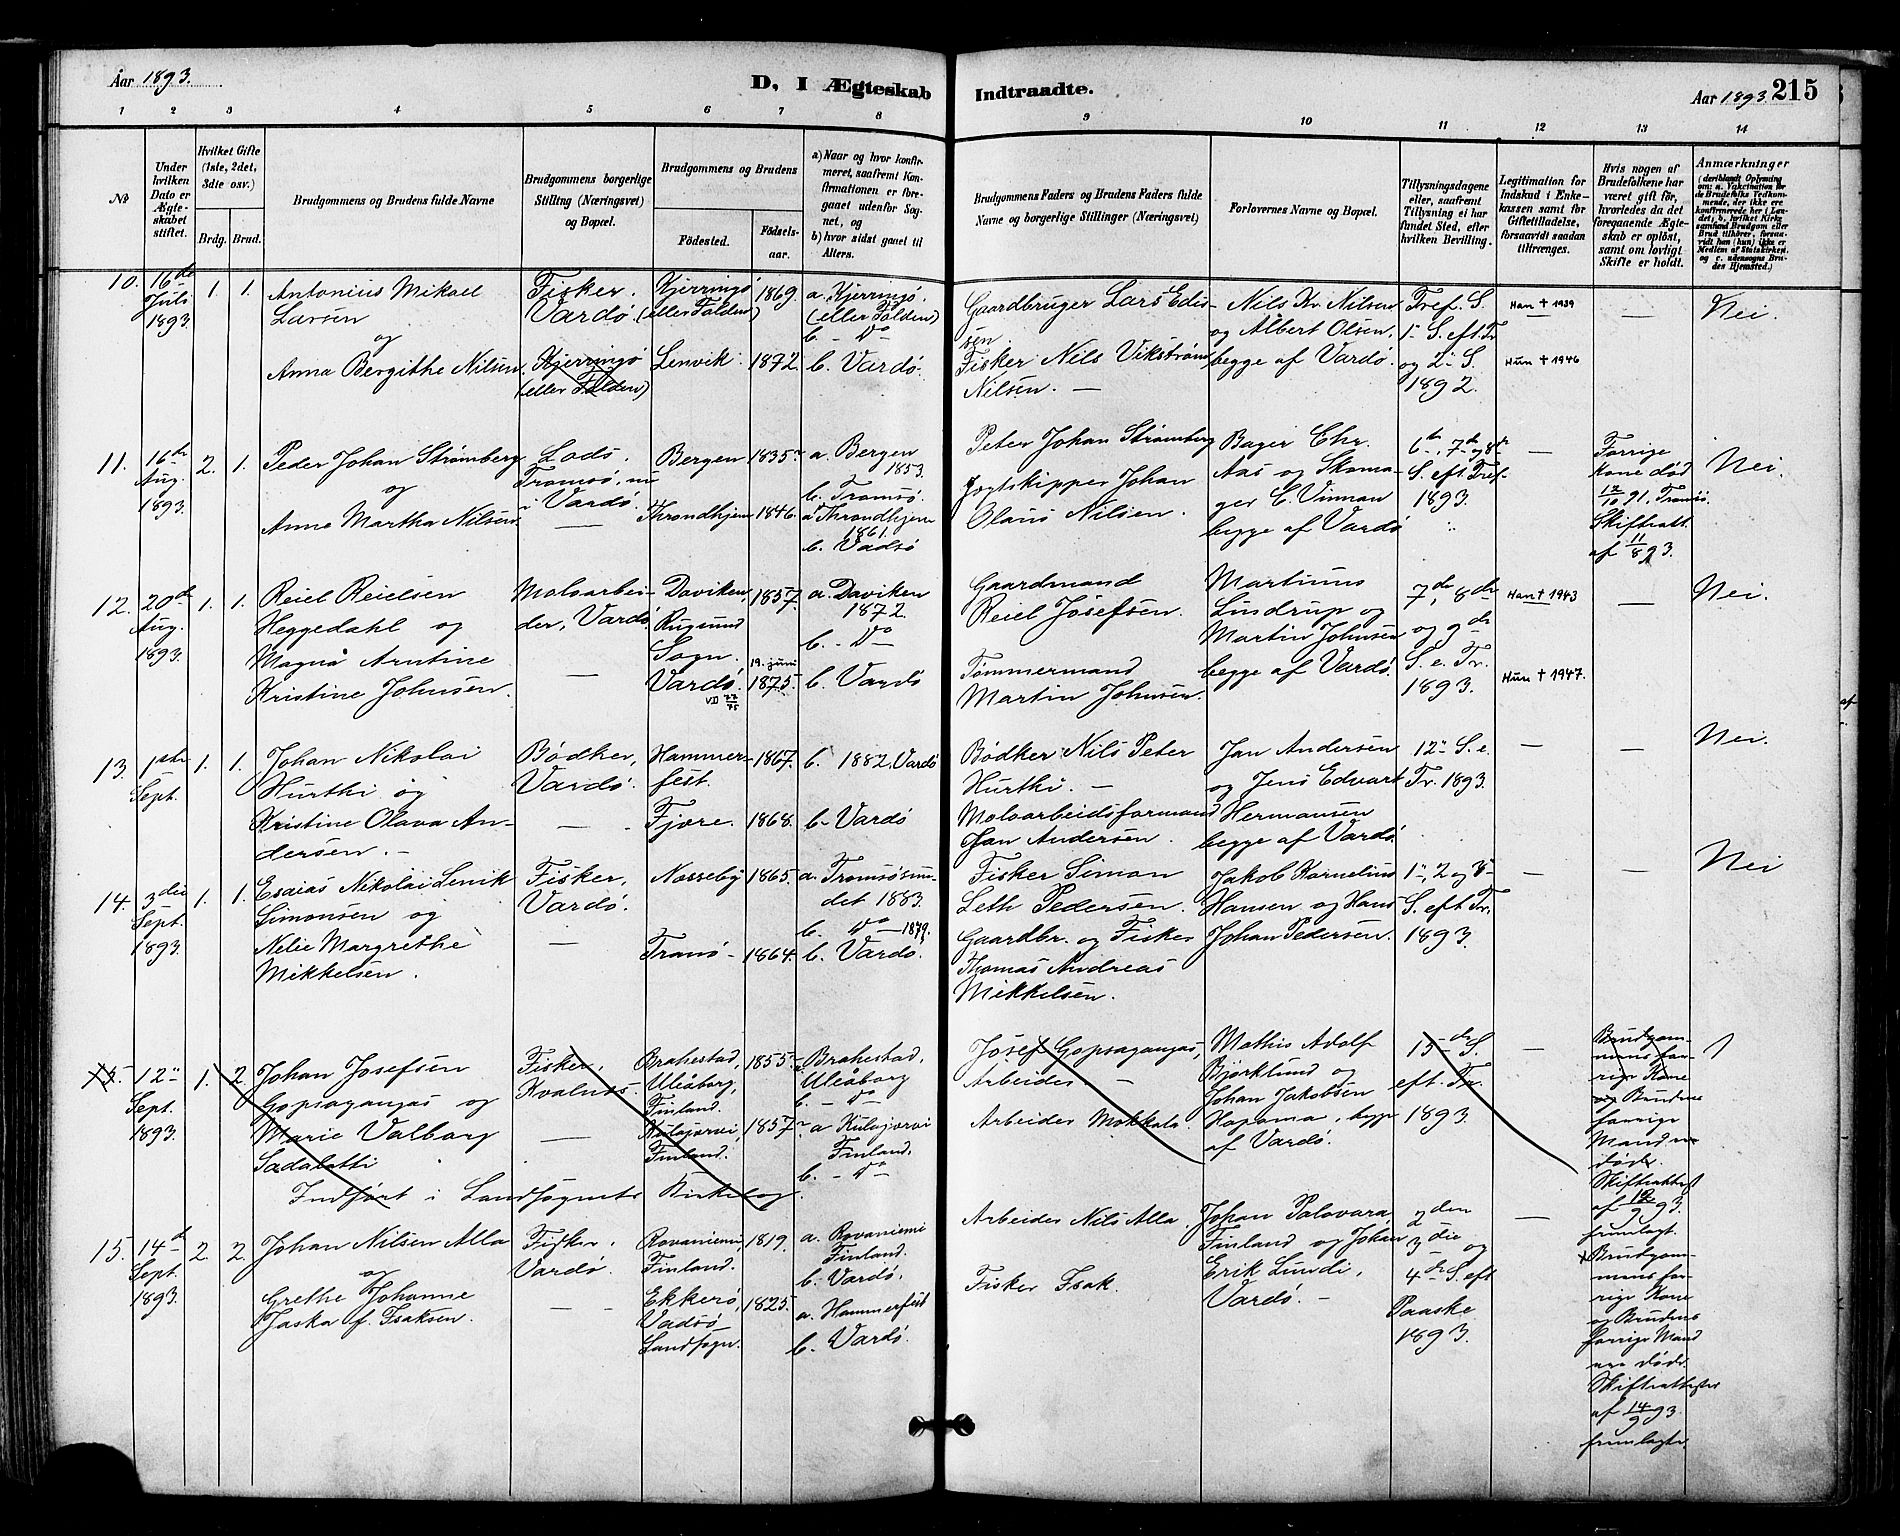 Aar 1893.
D, I Ægteskab Indtraadte.
Aar 1893. 215
1 2 3 4 5 6 7 8 9 10 11 12 13 14
№
Under hvilken Dato er Ægteskabet stiftet.
Hvilket Gifte (1ste, 2det, 3die osv.)
Brdg. Brud.
Brudgommens og Brudens fulde Navne
Brudgommens borgerlige Stilling (Næringsvei) og Bopæl.
Brudgommens og Brudens
Fødested.
Fødselsaar.
a) Naar og hvor konfirmeret, saafremt Konfirmationen er foregaaet udenfor Sognet, og
b) hvor sidst gaaet til Alters.
Brudgommens Faders og Brudens Faders fulde Navne og borgerlige Stillinger (Næringsvei)
Forlovernes Navne og Bopæl.
Tillysningsdagene eller, saafremt Tillysning ei har fundet Sted, efter hvilken Bevilling.
Legitimation for Indskud i Enkekassen samt for Giftetilladelse, forsaavidt saadan tiltrænges.
Hvis nogen af Brudefolkene har været gift før, hvorledes da det foregaaende Ægteskab er opløst, samt om lovligt Skifte er holdt.
Anmærkninger (deriblandt Oplysning om: a. Vakcination for de Brudefolks Vedkommende, der ikke ere konfirmerede her i Landet; b. hvilket Kirkesamfund Brudgom eller Brud tilhører, forsaavidt han (hun) ikke er Medlem af Statskirken, og c. udensogns Brudes Hjemsted.)
10. 16de Juli 1893. 1. 1.
Antonius Mikael
Larsen
og
Anna Bergithe Nilsen.
Fisker.
Vardø.
Kjerringø
(eller Folden)
Kjerringø
(eller Folden)
Lenvik.
1869.
1872.
a. Kjerringø.
(eller Folden)
b. Do
b. Vardø.
Gaardbruger Lars Edissen.
Fisker Nils Vikstrøm
Nilsen. —
Nils Kr. Nilsen
og Albert Olsen,
begge af Vardø.
Tref. S.
1. S. eft. Tr.
og 2. S.
1892.
Han † 1939
Hun † 1946
—
Nei.
11. 16de Aug. 1893. 2. 1.
Peder Johan Strømberg
og
Anne Martha Nilsen.
Lods.
Tromsø, nu
i Vardø.
—
Bergen
Throndhjem
1835.
1846.
a. Bergen
1853.
b. Tromsø.
a. Throndhjem
1861.
b. Vadsø
Peter Johan Strømberg
Jogtskipper Johan
Olaus Nilsen.
Bager Chr.
Aas og Skomager C. Vinnan
begge af Vardø
6te, 7de og 8de
S. eft Tref.
1893.
—
Forrige
Kone død
12/10 91. Tromsø.
Skifteatt.
af 11/8 93.
Nei.
12. 20de Aug. 1893. 1. 1.
Reiel Reielsen
Heggedahl og
Magna Arntine
Kristine Johnsen.
Moloarbeider, Vardø.
—
Daviken,
Rugsund
Sogn.
Vardø.
VD 77/75
1857
19. juni
1875.
a. Daviken
1872.
b. - Do
b. Vardø
Gaardmand
Reiel Josefsen.
Tømmermand
Martin Johnsen.
Martinus
Lindrup og
Martin Johnsen
begge af Vardø.
7de, 8de
og 9de
S. e. Tr.
1893.
Han † 1943
Hun † 1947.
—
Nei.
13. 1ste Sept. 1. 1.
Johan Nikolai
Hurthi og
Kristine Olava Andersen. —
Bødker,
Vardø.
—
Hammerfest.
Fjære.
1867.
1868.
b. 1882. Vardø
b. Vardø
Bødker Nils Peter
Hurthi. —
Moloarbeidsformand
Jan Andersen.
Jan Andersen
og Jens Edvart
Hermansen
begge af Vardø.
12. S. e.
Tr. 1893.
—
—
Nei.
14. 3die Sept. 1893. 1. 1.
Esaias Nikolai Lenik
Simonsen og
Nelie Margrethe
Mikkelsen.
Fisker,
Vardø.
—
Nesseby
Tranø
1865.
1864.
a. Tromsøsundet 1883.
b. Do 1879.
b. Vardø.
Fisker Simon
Leth Pedersen.
Gaardbr. og Fisker
Thomas Andreas
Mikkelsen.
Jakob Kornelius
Hansen og Hans
Johan Pedersen.
1., 2 og 3.
S. eft Tr.
1893.
—
—
Nei
15. 12. Sept. 1893. 1. 2.
Johan Josefsen
Gopsagangas og
Marie Valborg
Sadalatti
Fisker,
Kvalnes.
—
Brahestad,
Uleåborg,
Finland.
Kulajarvi,
Finland.
1855
1857
Brahestad,
Uleåborg
b. - Do
a. Kulajarvi
Finland.
b. - Do
Josef Gopsagangas,
Arbeider —
Arbeider Mokkala.
Mathis Adolf
Bjørklund og
Johan Jakobsen
Hapama, begge
af Vardø.
15de S.
eft. Tr.
1893.
—
Brudgommens forrige Kone
og Brudens
forrige
Mand
døde.
Skifteattest
af 12/9 93.
fremlagt.
Indført i Landsognets Kirkebog.
15. 14de Sept. 1893. 2. 2.
Johan Nilsen Alla
og
Grethe Johanne
Jaska f. Isaksen.
Fisker.
Vardø.
—
Rovaniemi,
Finland.
Ekkerø,
Vadsø
Landsogn.
1819.
1825.
a. Rovaniemi
Finland.
b. Vardø.
a. Hammerfest
b. Vardø.
Arbeider Nils Alla.
Fisker Isak.
Johan Palovara,
Finland og Johan
Erik Lundi,
Vardø. —
2den
3die og
4de S. eft
Paaske
1893.
—
Brudgommens forrige Kone
og Brudens
forrige Mand
ere døde.
Skifteattester
af 14/9 93.
fremlagte.